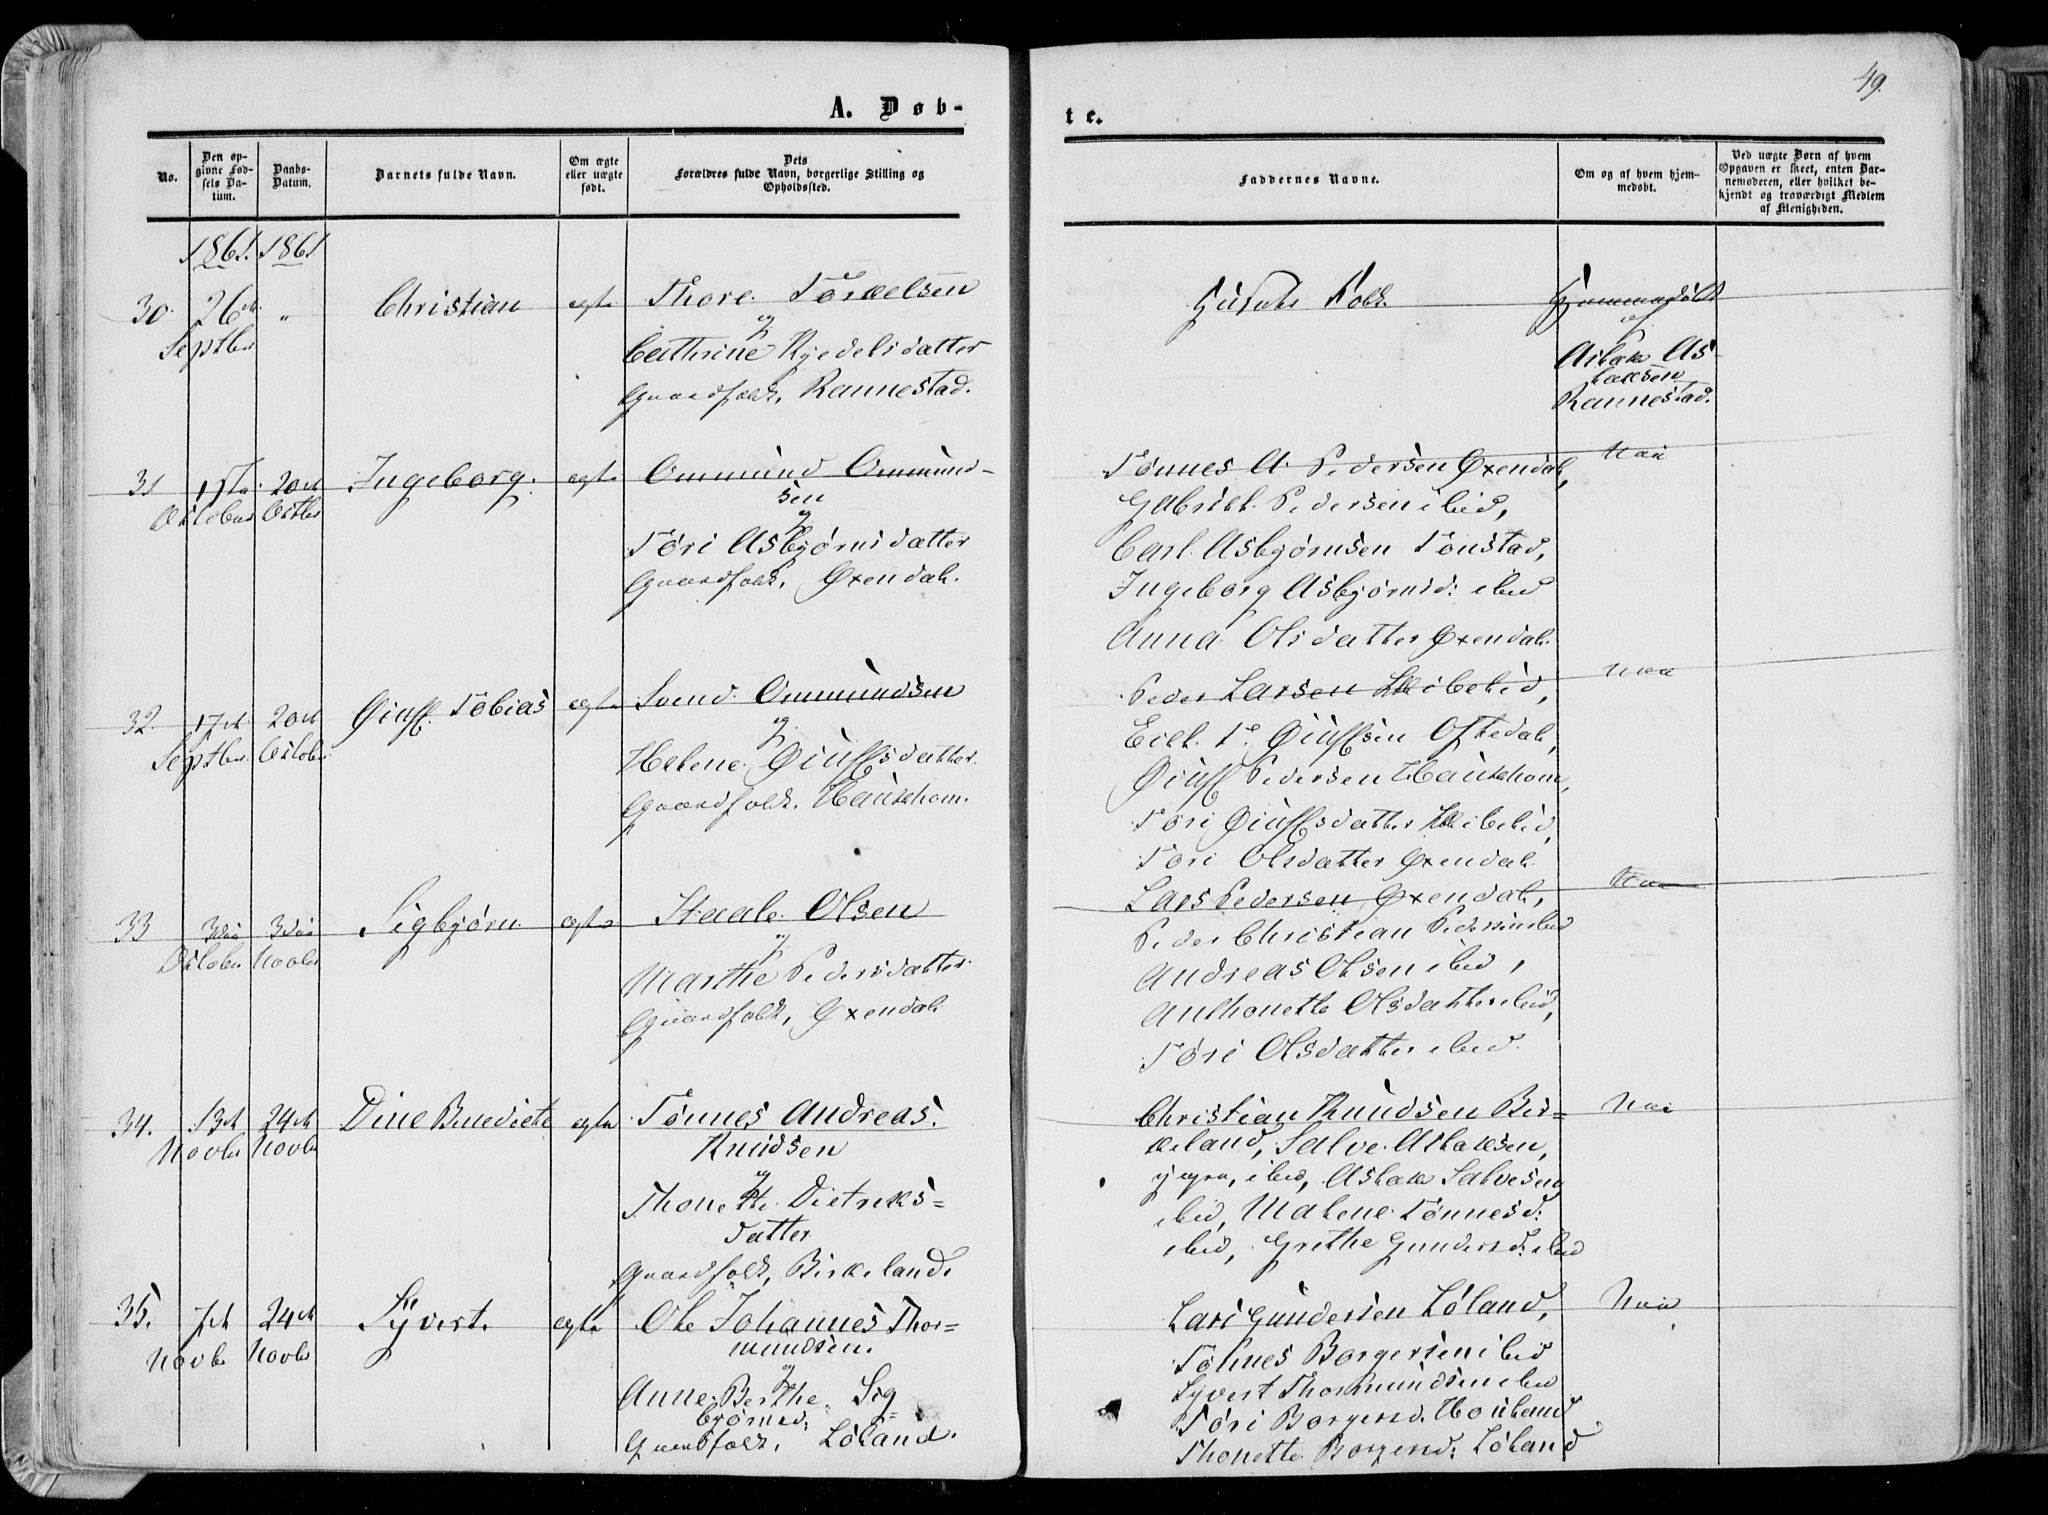 49.
A. Døb-
te.
No.
Den op-
givne Fød-
sels Da-
tum.
Daabs-
Datum.
Barnets fulde Navn.
Om ægte
eller uægte
født.
Dets
Forældres fulde Navn, borgerlige Stilling og
Opholdssted.
Faddernes Navne.
Om og af hvem hjem-
medøbt.
Ved uægte Børn af hvem
Opgaven er skeet, enten Bar-
nemoderen, eller hvilket be-
kjendt og troværdigt Medlem
af Menigheden.
1861. 1861
30. 26de " Christian ægte Thore Tørkelsen
Septber
og
Cathrine Kjedelsdatter
Gaardfolk, Rannestad.
Husets Folk.
Hjemmedøbt
af
Aslak As-
laksen
Rannestad.
31 15te 20de Ingeborg. ægte Ommund Ommund-
October Octbr
sen
og
Tøri Asbjørnsdatter
Gaardfolk, Øxendal.
Tønnes A. Pedersen Øxendal, Naa
Gabriel Pedersen ibid,
Carl Asbjørnsen Tonstad,
Ingeborg Asbjørnsd: ibid
Anna Olsdatter Øxendal.
32. 17de 20de Øiuff Tobias ægte Svend Ommundsen
Septber October
og
Helene Øiuffsdatter
Gaardfolk. Haukehom.
Peder Larsen Naa
Øiuffsen Oftedal,
Øiuff Pedersen Haukehom,
Tøri Øiuffsdatter
Tøri Olsdatter Øxendal
33 3die 3die Sigbjørn ægte Staale Olsen
October Novbr
og
Marthe Pedersdatter
Gaardfolk, Øxendal
Lars Pedersen Øxendal, Naa
Peder Christian Pedersen ibid
Andreas Olsen ibid,
Anthonette Olsdatter ibid,
Tøri Olsdatter ibid.
34. 13de 24de Dine Benedicte ægte Tønnes Andreas
Novbr Novbr
Knudsen
og
Thonette Dietriks=
datter
Gaardfolk, Birkeland.
Christian Knudsen Bir= Naa
keland, Salve Aslaksen,
yngre, ibid, Aslak Salvesen
ibid, Malene Tønnesd:
ibid, Grethe Gundersd: ibid
35. 7de 24de Syvert. ægte Ole Johannes Thor=
Novbr Novbr
mundsen.
og
Anne Berthe Sig=
bjørnsd:
Gaardfolk, Løland.
Lars Gundersen Løland, Naa
Tønnes Borgersen ibid
Syvert Thormundsen ibid
Tøri Borgersd. Houland
Thonette Borgersd: Løland